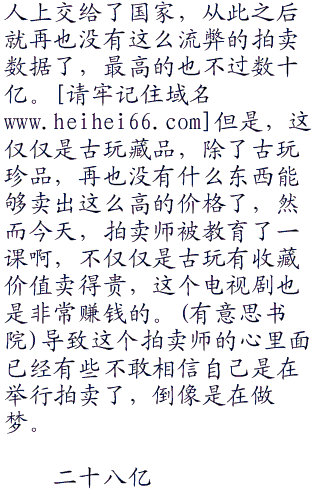 人上交给了国家，从此之后
就再也没有这么流弊的拍卖
数据了，最高的也不过数十
亿。[请牢记住域名
www.heihei66.com]但是，这
仅仅是古玩藏品，除了古玩
珍品，再也没有什么东西能
够卖出这么高的价格了，然
而今天，拍卖师被教育了一
课啊，不仅仅是古玩有收藏
价值卖得贵，这个电视剧也
是非常赚钱的。(有意思书
院)导致这个拍卖师的心里面
已经有些不敢相信自己是在
举行拍卖了，倒像是在做
梦。
二十八亿